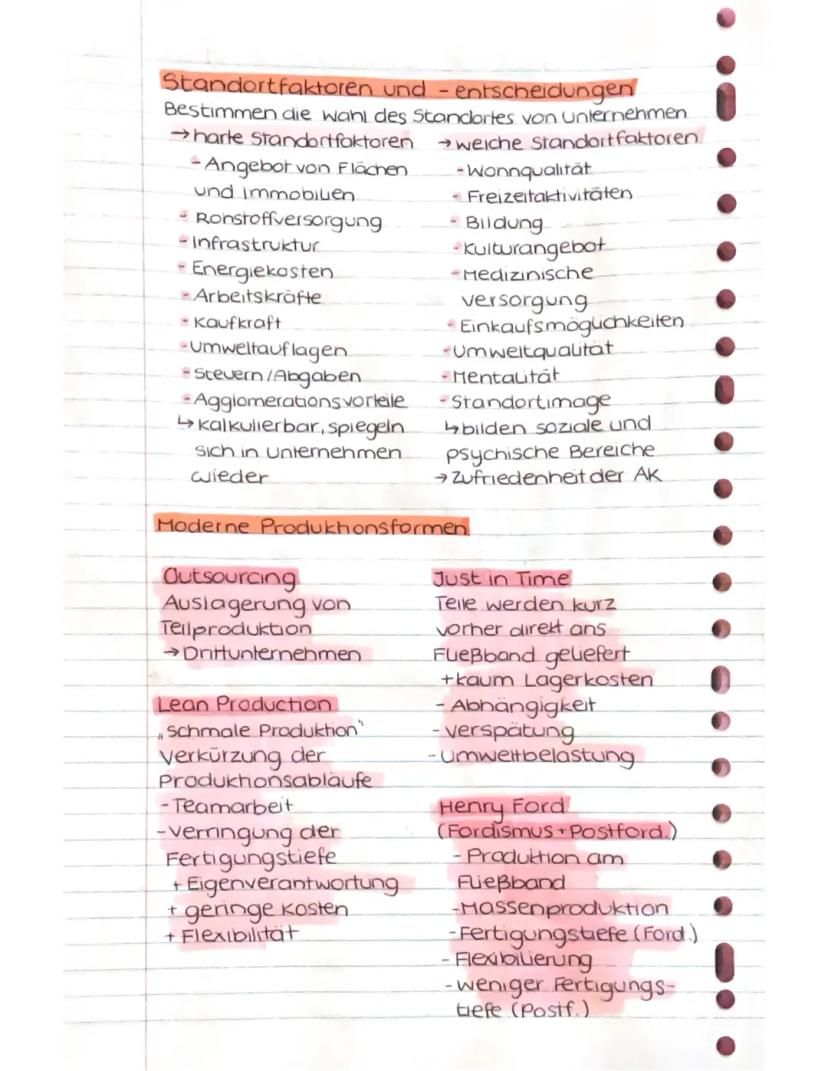 Standortfaktoren und - entscheidungen
Bestimmen die Wahl des Standortes von Unternehmen
→ harte Standortfaktoren
- Angebot von Flächen
und Immobilien
- Rohstoffversorgung
- Infrastruktur
- Energiekosten
- Arbeitskräfte
- Kaufkraft
- Umweltauflagen
- Steuern/Abgaben
- Agglomerationsvorteile
↳ kalkulierbar, spiegeln
sich in Unternehmen
wieder
→ weiche Standortfaktoren
- Wohnqualität
- Freizeitaktivitäten
- Bildung
- Kulturangebot
- Medizinische
versorgung
- Einkaufsmöglichkeiten
- Umweltqualität
- Mentalität
- Standortimage
↳ bilden soziale und
psychische Bereiche
→ Zufriedenheit der AK
Moderne Produktionsformen
Outsourcing
Auslagerung von
Teilproduktion
→ Drittunternehmen
Lean Production
„schmale Produktion“
Verkürzung der
Produktionsabläufe
- Teamarbeit
- Verringung der
Fertigungstiefe
+ Eigenverantwortung
+ geringe Kosten
+ Flexibilität
Just in Time
Teile werden kurz
vorher direkt ans
Fließband geliefert
+ kaum Lagerkosten
- Abhängigkeit
- Verspätung
- Umweltbelastung
Henry Ford
(Fordismus + Postford.)
- Produktion am
Fließband
- Massenproduktion
- Fertigungstiefe (Ford.)
- Flexibilierung
- weniger Fertigungs-
tiefe (Postf.)